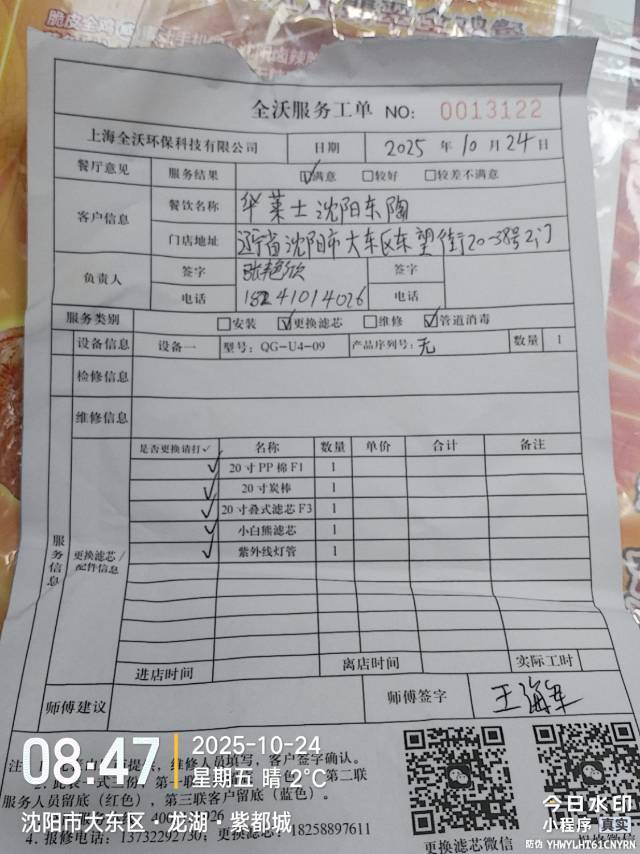 全沃服务工单 NO: 0013122
上海全沃环保科技有限公司 日期 2025 年 10 月 24 日
餐厅意见 服务结果 ☑满意 □较好 □较差不满意
客户信息 餐饮名称 华莱士沈阳东陶
门店地址 辽宁省沈阳市大东区东望街20-38号2门
负责人 签字 签字
电话 18241014026 电话
服务类别 □安装 ☑更换滤芯 □维修 ☑管道消毒
设备信息 设备一 型号: QG-U4-09 产品序列号: 无 数量 1
检修信息
维修信息
服务信息
更换滤芯/配件信息
是否更换请打✓ 名称 数量 单价 合计 备注
✓ 20寸PP棉F1 1
✓ 20寸炭棒 1
✓ 20寸叠式滤芯F3 1
✓ 小白熊滤芯 1
✓ 紫外线灯管 1
进店时间 离店时间 实际工时
师傅建议 师傅签字 王海
维修人员填写，客户签字确认。
第二联
服务人员留底（红色），第三联客户留底（蓝色）。
4. 报修电话: 13732292730; 更换滤芯: 18258897611
更换滤芯微信
08:47 2025-10-24
星期五 晴 2℃
沈阳市大东区·龙湖·紫都城
今日水印
小程序 真实
防伪 YHWYLHT61CNYRN